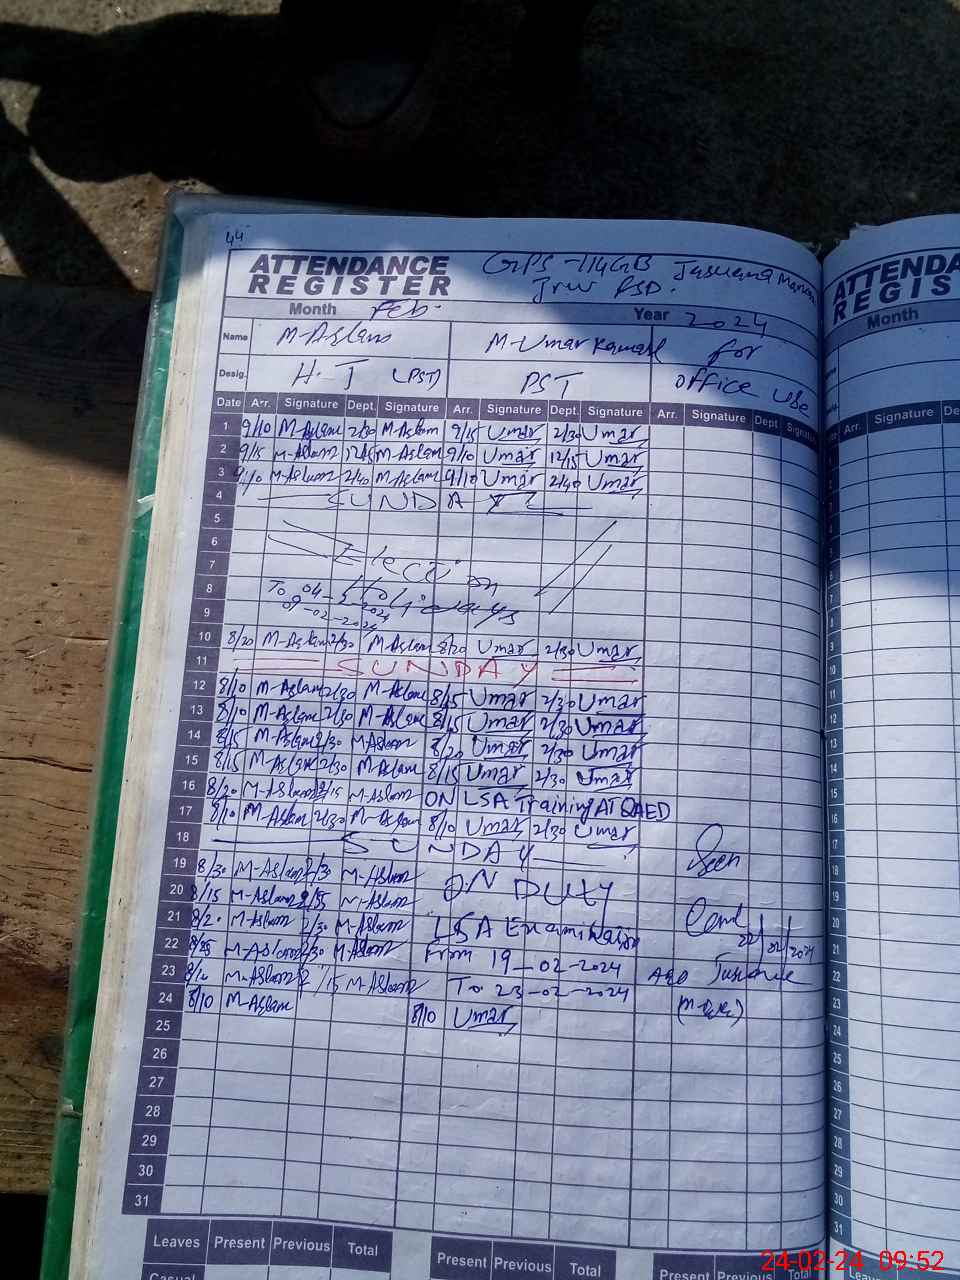 44
ATTENDANCE REGISTER
GPS-114GB Jasuana
PSD.
Month Feb. Year 2024
Name M-Aslam M-Umar for
Desig. H.T (PST) PST office use
Date Arr. Signature Dept. Signature Arr. Signature Dept. Signature Arr. Signature Dept Signatu
1 9/10 M-Aslam 2/30 M-Aslam 9/15 Umar 2/30 Umar
2 9/15 M-Aslam 12/15 M-Aslam 9/10 Umar 12/15 Umar
3 9/10 M-Aslam 2/40 M-Aslam 9/10 Umar 2/40 Umar
4 SUNDAY
5
6 Election
7
8 Holidays
To 04-
9 09-02-2024
10 8/20 M-Aslam 2/30 M-Aslam 8/20 Umar 2/30 Umar
11 SUNDAY
12 8/10 M-Aslam 2/30 M-Aslam 8/15 Umar 2/30 Umar
13 8/10 M-Aslam 2/30 M-Aslam 8/15 Umar 2/30 Umar
14 8/15 M-Aslam 2/30 M-Aslam 8/20 Umar 2/30 Umar
15 8/15 M-Aslam 2/30 M-Aslam 8/15 Umar 2/30 Umar
16 8/20 M-Aslam 2/15 M-Aslam ON LSA Training AT QAED
17 8/10 M-Aslam 2/30 M-Aslam 8/10 Umar 2/30 Umar
18 SUNDAY Seen
19 8/30 M-Aslam 2/30 M-Aslam ON DUTY
20 8/15 M-Aslam M-Aslam
21 M-Aslam 2/30 M-Aslam LSA Examination
22 M-Aslam 2/30 M-Aslam From 19-02-2024 22/02/2024
23 M-Aslam 2/15 M-Aslam To 23-02-2024 AEO
24 8/10 M-Aslam 8/10 Umar
25
26
27
28
29
30
31
Leaves Present Previous Total Present Previous Total Present Previous Total
Casual
ATTENDA
REGIS
Month
Arr. Signature De
24-02-24 09:52